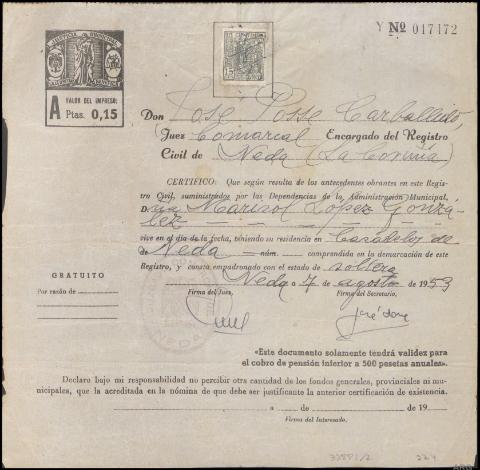 Y Nº 017172
VALOR DEL IMPRESO:
A Ptas. 0,15
15
Don José Posse Carballido,
Juez Comarcal Encargado del Registro
Civil de Neda (La Coruña)
CERTIFICO: Que según resulta de los antecedentes obrantes en este Regis-
tro Civil, suministrados por las Dependencias de la Administración Municipal,
D.ña Marisol López Gonzá-
lez
vive en el día de la fecha, teniendo su residencia en de
de Neda — núm. — comprendida en la demarcación de este
Registro, y consta empadronado con el estado de soltera
GRATUITO
Por razón de
Neda a 7 de agosto de 1953
Firma del Juez, Firma del Secretario,
NEDA
«Este documento solamente tendrá validez para
el cobro de pensión inferior a 500 pesetas anuales».
Declaro bajo mi responsabilidad no percibir otra cantidad de los fondos generales, provinciales ni mu-
nicipales, que la acreditada en la nómina de que debe ser justificante la anterior certificación de existencia.
a de de 19
Firma del Interesado.